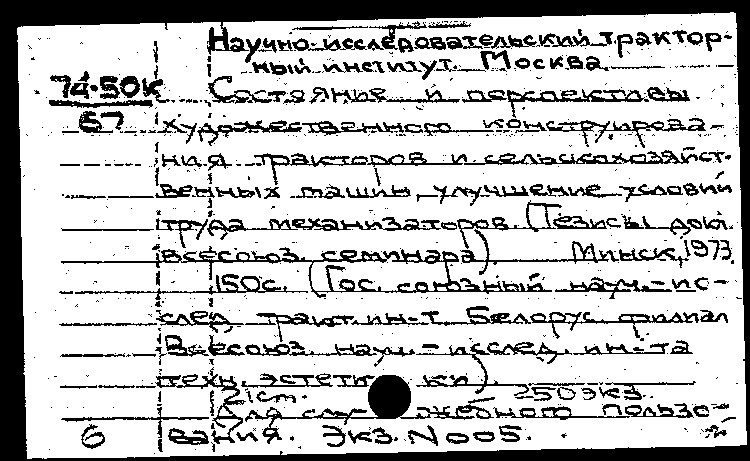 Научно-исследовательский трактор-
ный институт. Москва.
74-50К
67
Состояние и перспективы
художественного конструирова-
ния тракторов и сельскохозяйст-
венных машин, улучшение условий
труда механизаторов. (Тезисы докл.
всесоюз. семинара). Минск, 1973.
150с. (Гос. союзный науч.-ис-
след. тракт. ин-т. Белорус. филиал
Всесоюз. науч.-исслед. ин-та
техн. эстетики).
21см. 250экз.
Для служебного пользо-
6 вания. Экз. N 005.